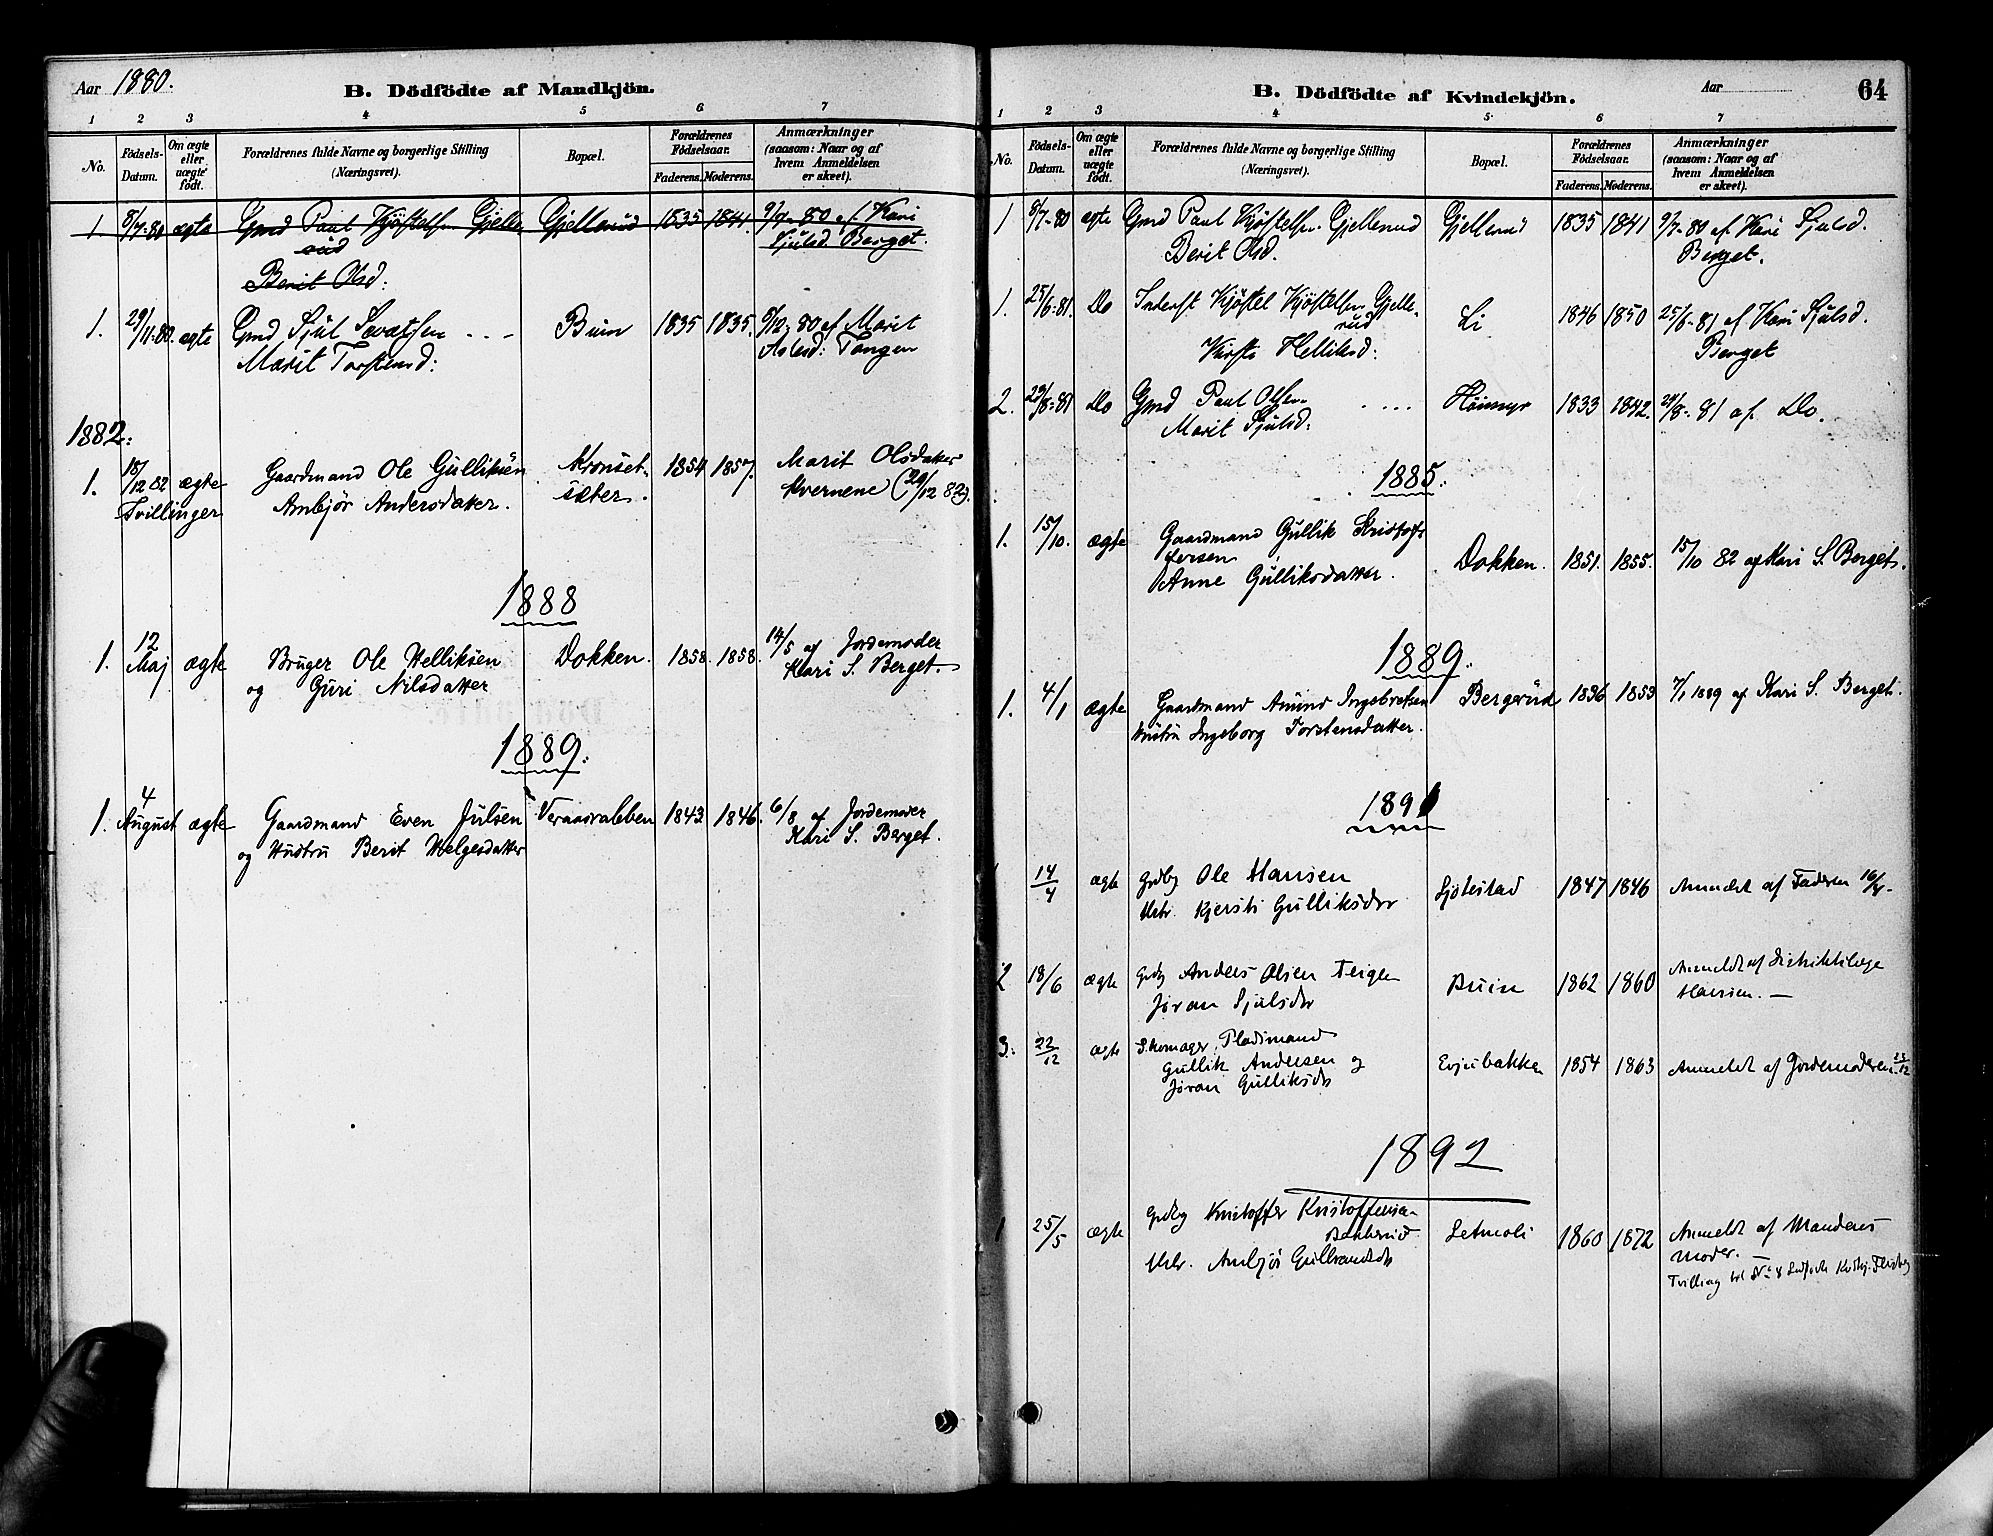 Aar 1880.
B. Dödfödte af Mandkjön.
1 2 3 4 5 6 7
No. Födsels-Datum. Om ægte eller uægte født. Forældrenes fulde Navne og borgerlige Stilling (Næringsvei). Bopæl. Forældrenes Födselsaar. Faderens. Moderens. Anmærkninger (saasom: Naar og af hvem Anmeldelsen er skeet).
1. 8/7-80 ægte Gmd Paul Kjöstelsen Gjelle- Gjellerud 1835 1841. 9/7-80 af Kari
rud Sjulsd. Berget.
Berit Olsd:
1. 29/11-80. ægte Gmd Sjul Sevatsen Buin 1835 1835. 9/12-80 af Marit
Marit Torstensd: Aslesd: Tangen
1882:
1. 18/12 82 ægte Gaardmand Ole Gulliksen Kronset- 1854 1857. Marit Olsdatter
Tvillinger Ambjör Andersdatter. sæter. Kvernene (20/12 82).
1888
1. 12 Maj ægte Bruger Ole Helliksen Dokken. 1858. 1858. 14/5 af Jordemoder
og Guri Nilsdatter Kari S. Berget.
1889.
1. 4 August ægte Gaardmand Even Julsen 1843. 1846. 6/8 af Jordemoder
og Hustru Berit Helgesdatter Kari S. Berget.
B. Dödfödte af Kvindekjön.
Aar 64
1 2 3 4 5 6 7
No. Födsels-Datum. Om ægte eller uægte født. Forældrenes fulde Navne og borgerlige Stilling (Næringsvei). Bopæl. Forældrenes Födselsaar. Faderens. Moderens. Anmærkninger (saasom: Naar og af hvem Anmeldelsen er skeet).
1 8/7-80 ægte Gmd Paul Kjöstelsen Gjellerud Gjellerud 1835 1841 9/7-80 af Kari Sjulsd.
Berit Olsd. Berget.
1. 25/6-81. Do Inderst Kjöstel Kjöstelsen Gjelle- Li 1846 1850 25/6-81 af Kari Sjulsd.
rud Berget
Kirsti Helliksd:
2. 29/8-81 Do Gmd Paul Olsen Höimyr 1833 1842. 29/8-81 af Do.
Marit Sjulsd:
1885.
1. 15/10. ægte Gaardmand Gullik Kristof-
fersen Dokken. 1851. 1855. 15/10 82 af Kari S. Berget.
Anne Gulliksdatter.
1889.
1. 4/1 ægte Gaardmand Amund Ingebretsen Bergerud 1836 1853 7/1 1889 af Kari S. Berget.
Hustru Ingeborg Torstensdatter.
1891
14/4 ægte Grdbg Ole Hansen 1847 1846 Anmeldt af Faderen 16/4-
Hstr. Kjersti Gulliksdtr
2 18/6 ægte Grdbg Anders Olsen Teigen Buin 1862 1860 Anmeldt af Distriktslæge
Jøran Sjulsdtr Hansen.
3. 22/12 ægte Skomager, Pladsmand
Gullik Andersen og Evjubakken 1854 1863 Anmeldt af Jordemoderen 23/12
Jøran Gulliksdtr
1892
1 25/5 ægte Grdbg Kristoffer Kristoffersen Setmoli 1860 1872 Anmeldt af Mandens
Bakkerud Moder.
Hstr. Ambjør Gulbrandsdtr
Tvilling til